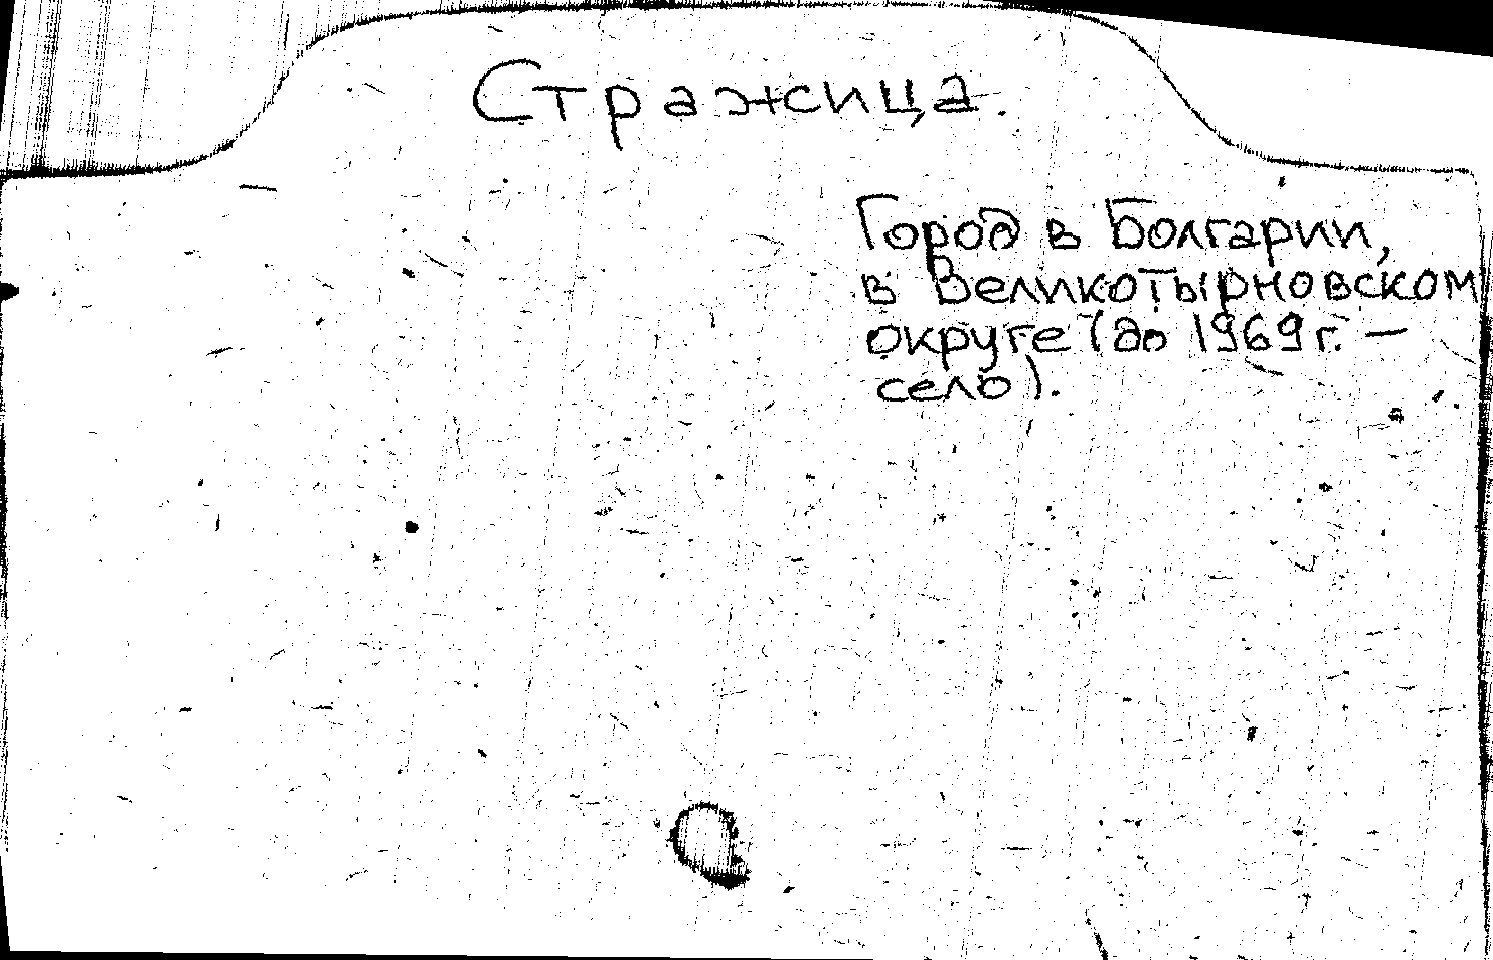 Стражица.
Город в Болгарии,
в Великотырновском
округе (до 1969 г. —
село).